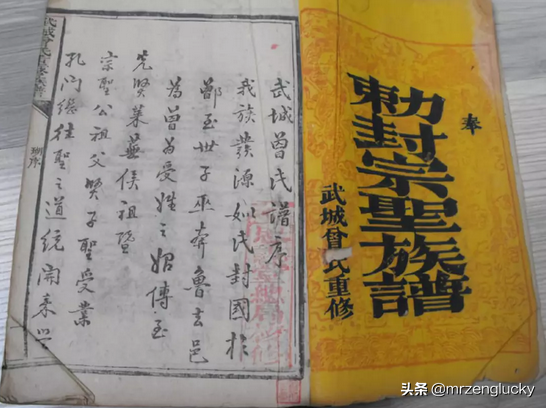 奉
勅封宗聖族譜
武城曾氏重修
武城曾氏譜序
我族發源姒氏封國於
鄫至世子巫奔魯去邑
為曾為受姓之始傳至
先賢萊蕪侯祖暨
宗聖公祖父賢子聖受業
孔門繼往聖之道統開來學
头条 @mrzenglucky